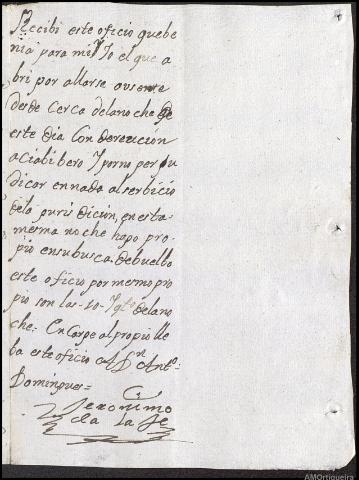 Recibi este oficio quebe
nia para mi Yo el que a
bri por allarse ausente
desde cerca delanoche de
este dia Con dereucion
a ciabibero Y porno perju
dicar ennada alserbicio
dela juris dicion, enesta
mesma noche hago pro-
pio ensubusca. debuelbo
este oficio por mesmo pro
pio son las - 10 - delano
che = En Carge al propio lle
ba este oficio A Dn Anto.
Domingues =
Jeronimo
de la
AMOrtigueira